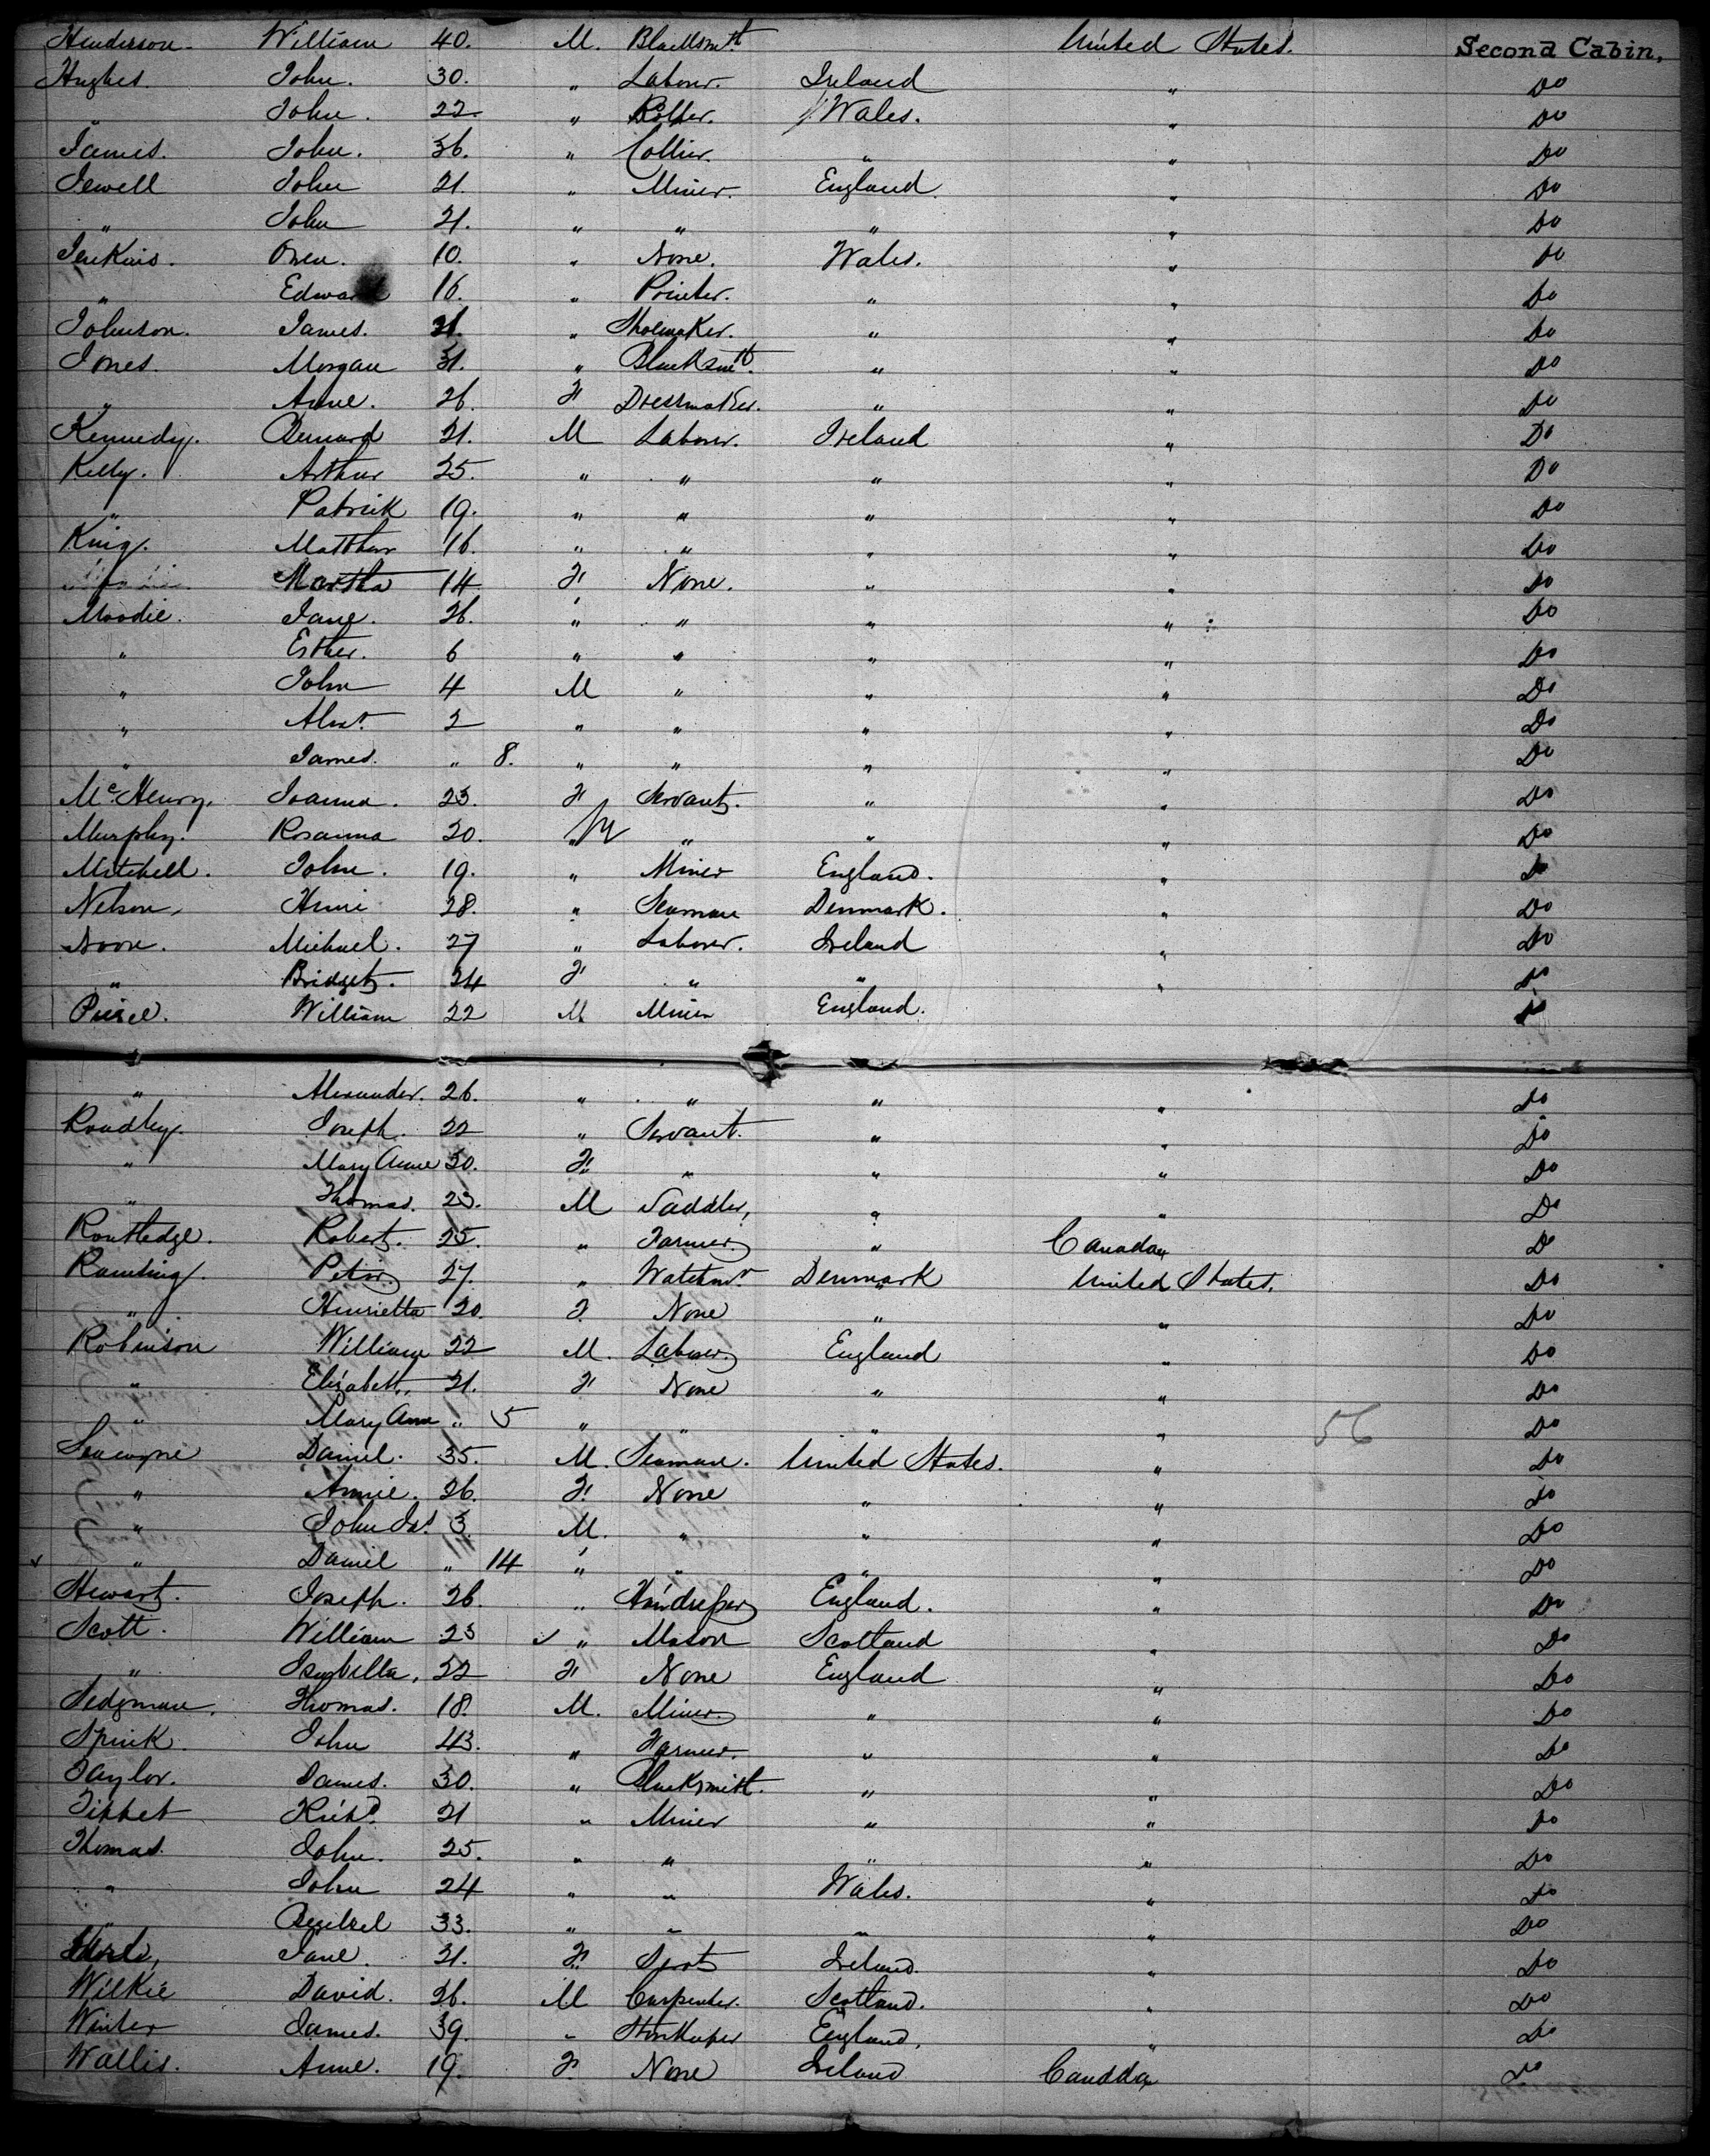 Henderson. William 40. M. Blacksmt United States. Second Cabin,
Hughes. John. 30. " Labour. Ireland " Do
" John. 22. " Wales. " Do
James. John. 36. " Collier. " " Do
Jewell John 21. " Miner. England. " Do
" John 21. " " " " Do
Jenkins. Owen. 10. " None. Wales. " Do
" Edward 16. " Printer. " " Do
Johnson. James. 21. " Shoemaker. " " Do
Jones. Morgan 31. " Blacksmt. " " Do
" Anne. 26. F Dressmaker. " " Do
Kennedy. Bernard 21. M Labour. Ireland " Do
Kelly. Arthur 25. " " " " Do
" Patrick 19. " " " " Do
King. Matthew 16. " " " " Do
Martha 14 F None. " " Do
Moodie. Jane. 26. " " " " Do
" Esther. 6 " " " " Do
" John 4 M " " " Do
" Alexr. 2 " " " " Do
" James. " 8. " " " " Do
Mc Henry. Joanna. 23. F Servant. " " Do
Murphy. Rosanna 20. " M " " " Do
Mitchell. John. 19. " Miner England. " Do
Nelson, 28. " Seaman Denmark. " Do
Noon. Michael. 27 " Labour. Ireland " Do
" Bridget. 24 F " " " Do
William 22 M Miner England. Do
" Alexander. 26. " " " " Do
Roadley. Joseph. 22 " Servant. " " Do
" Mary Anne 20. F. " " " Do
" Thomas. 23. M Saddler, " " Do
Routledge. Robert. 25. " Farmer " Canada Do
Peter 27. " Watchmr Denmark United States. Do
" Henrietta 20. F. None " " Do
Robinson William 22 M. Labour England " Do
" Elizabeth. 21. F None " " Do
" Mary Ann " 5 " " " " 56 Do
Daniel. 35. M. Seaman. United States. " Do
" Annie. 26. F. None " " Do
" John Jas 3. M. " " " Do
" Daniel " 14 " " " " Do
Stewart. Joseph. 26. " Hairdresser England. " Do
Scott. William 23 " Mason Scotland " Do
" Isabella, 22 F None England " Do
Sedgman, Thomas. 18. M. Miner. " " Do
Spink. John 43. " Farmer. " " Do
Taylor. James. 30. " Blacksmith. " " Do
Tippet Richd. 21 " Miner " " Do
Thomas. John. 25. " " " " Do
" John 24 " " Wales. " Do
" 33. " " " " Do
Jane. 21. F. Servt Ireland. " Do
Wilkie David. 26. M Carpenter. Scotland. " Do
Winter James. 39. " Storekeeper England, " Do
Wallis. Anne. 19. F. None Ireland Canada Do